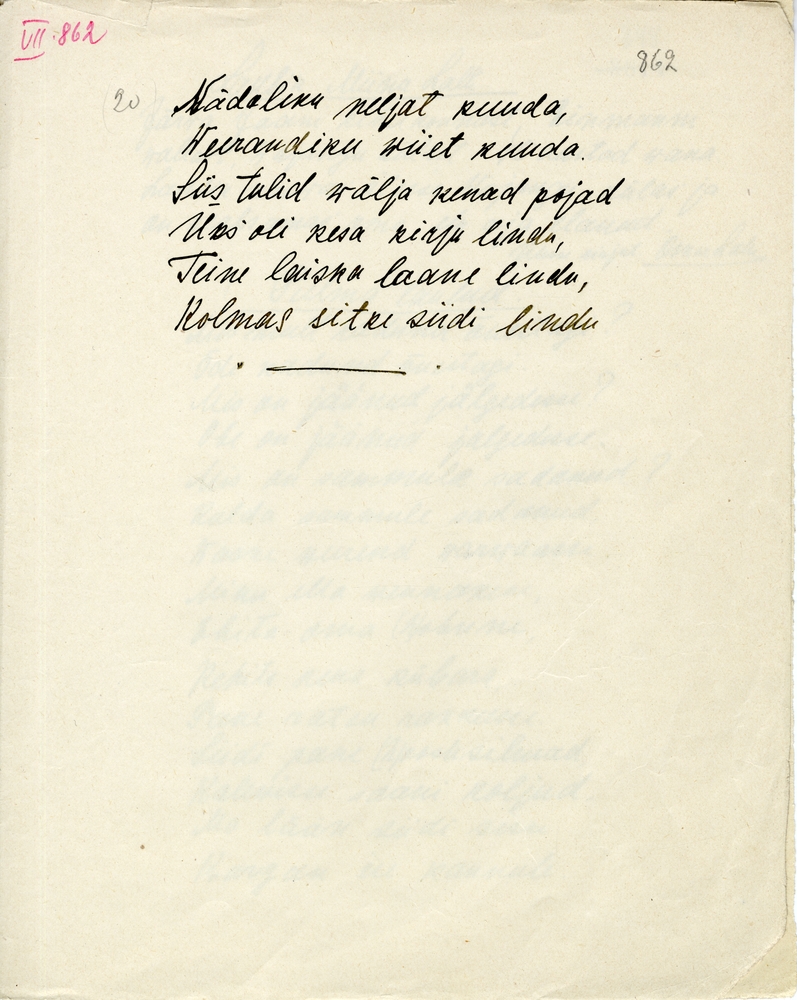 VII.862
862
(20)
Nädaliku neljat kuuda,
Weerandiku wiiet kuuda.
Siis tulid wälja kenad pojad
Üks oli kesa kirju lindu,
Teine laiska laane lindu,
Kolmas sitke siidi lindu